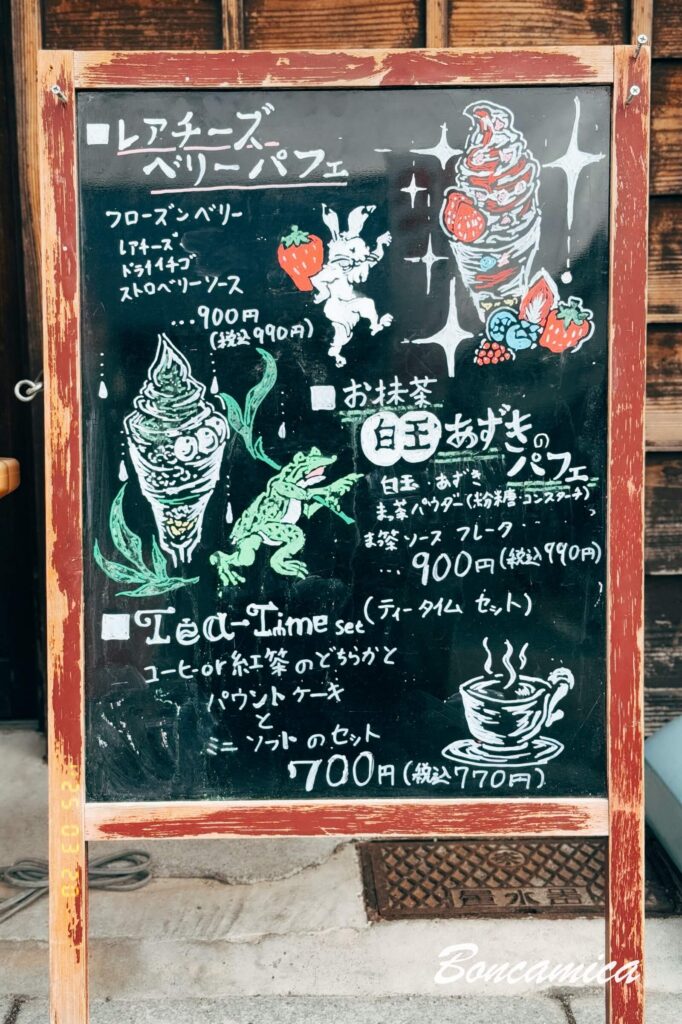 レアチーズ
ベリーパフェ
フローズンベリー
レアチーズ
ドライイチゴ
ストロベリーソース
…900円
(税込990円)
お抹茶
白玉あずきの
パフェ
白玉・あずき
まっ茶パウダー(粉糖・コンスターチ)
まっ茶ソース フレーク
…900円(税込990円)
Tea-Time set(ティータイム セット)
コーヒーor紅茶のどちらかと
パウンドケーキ
と
ミニソフトのセット
700円(税込770円)
Boncamica